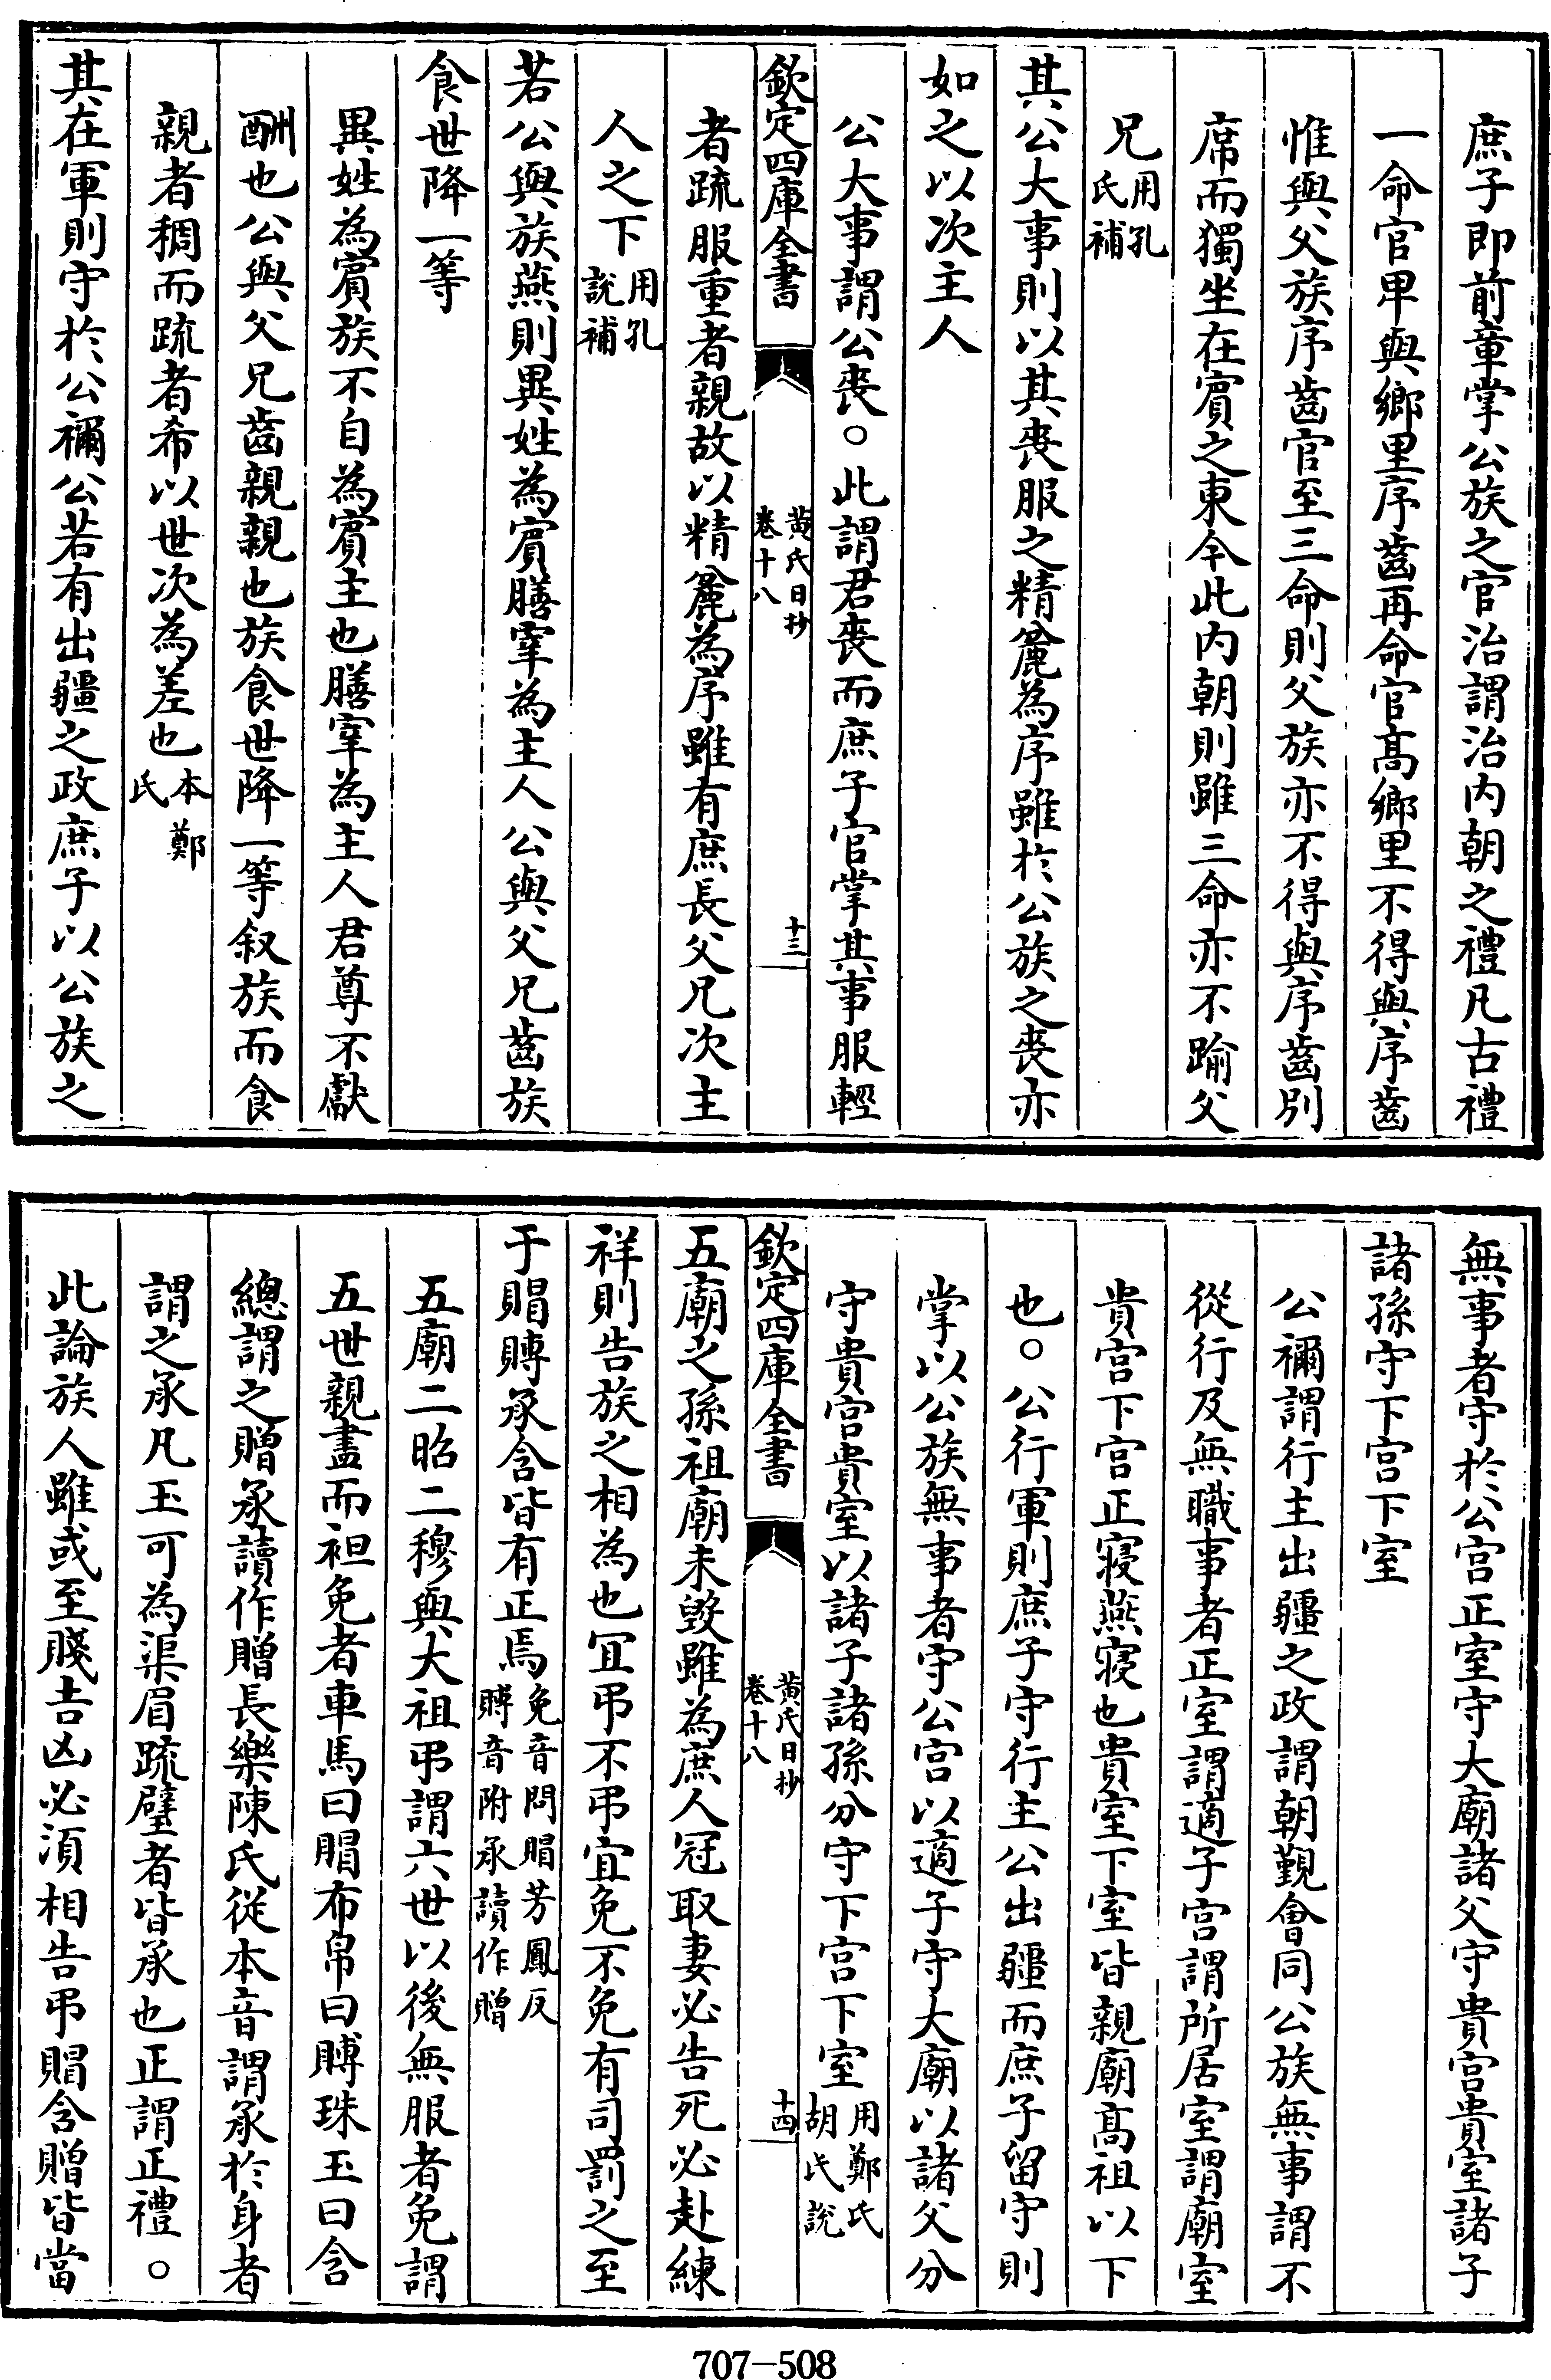 庶子即前章掌公族之官治謂治内朝之禮凡古禮
一命官卑與鄉里序齒再命官髙鄉里不得與序齒
惟與父族序齒官至三命則父族亦不得與序齒別
席而獨坐在賔之東今此内朝則雖三命亦不踰父
兄用孔氏補
其公大事則以其喪服之精麄為序雖於公族之喪亦
如之以次主人
公大事謂公喪○此謂君喪而庶子官掌其事服輕
欽定四庫全書
黃氏日抄
卷十八
十三
者疏服重者親故以精麄為序雖有庶長父兄次主
人之下用孔說補
若公與族燕則異姓為賔膳宰為主人公與父兄齒族
食世降一等
異姓為賔族不自為賔主也膳宰為主人君尊不獻
酬也公與父兄齒親親也族食世降一等叙族而食
親者稠而疏者希以世次為差也本鄭氏
其在軍則守於公禰公若有出疆之政庶子以公族之
無事者守於公宫正室守大廟諸父守貴宫貴室諸子
諸孫守下宫下室
公禰謂行主出疆之政謂朝覲會同公族無事謂不
從行及無職事者正室謂適子宫謂所居室謂廟室
貴宫下宫正寢燕寢也貴室下室皆親廟髙祖以下
也○公行軍則庶子守行主公出疆而庶子留守則
掌以公族無事者守公宫以適子守大廟以諸父分
守貴宫貴室以諸子諸孫分守下宫下室用鄭氏胡氏說
欽定四庫全書
黃氏日抄
卷十八
十四
五廟之孫祖廟未毀雖為庶人冠取妻必告死必赴練
祥則告族之相為也冝弔不弔宜免不免有司罰之至
于賵賻承含皆有正焉免音問賵芳鳳反賻音附承讀作贈
五廟二昭二穆與大祖弔謂六世以後無服者免謂
五世親盡而袒免者車馬曰賵布帛曰賻珠玉曰含
總謂之贈承讀作贈長樂陳氏從本音謂承於身者
謂之承凡玉可為渠眉疏璧者皆承也正謂正禮○
此論族人雖或至賤吉凶必須相告弔賵含贈皆當
707-508